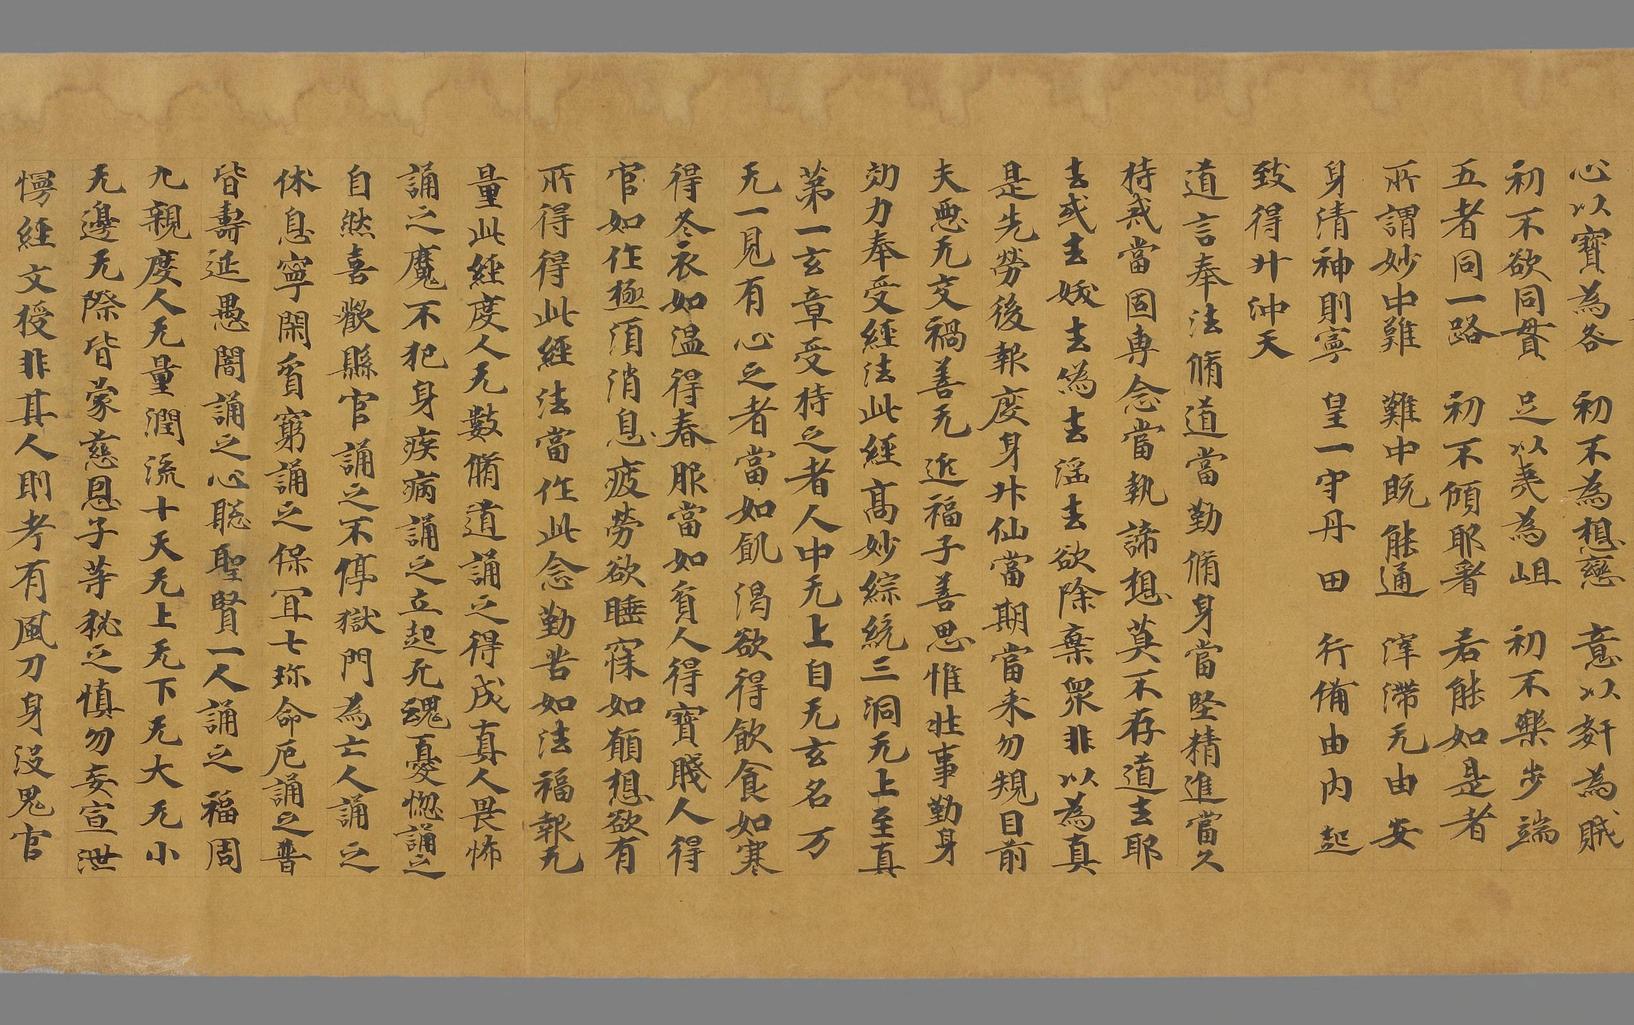 心以寶為各　初不為想戀　意以姧為賊
初不欲同貫　足以義為岨　初不樂步端
五者同一路　初不傾耶者　若能如是者
所謂妙中難　難中既能通　渾滯无由安
身清神則寧　皇一守丹田　行備由內起
致得升沖天
道言奉法脩道當勤脩身當堅精進當久
持戒當固專念當執諦想莫不存道去耶
去或去娀去偽去淫去欲除棄眾非以為真
是先勞後報度身升仙當期當来勿規目前
夫惡无交禍善无近福子善思惟壯事勤身
効力奉受經法此經髙妙綜統三洞无上至真
苐一玄章受持之者人中无上自无玄名万
无一見有心之者當如飢渴欲得飲食如寒
得冬衣如溫得春服當如貧人得寶賤人得
官如作極須消息疲勞欲睡寐如願想欲有
所得得此經法當作此念勤苦如法福報无
量此經度人无數脩道誦之得成真人畏怖
誦之魔不犯身疾病誦之立起死魂憂惱誦之
自然喜歡縣官誦之不停獄門為亡人誦之
休息寧閑貧窮誦之保冝七珎命厄誦之普
皆壽延愚闇誦之心聡聖賢一人誦之福周
九親度人无量潤流十天无上无下无大无小
无邊无際皆蒙慈恩子等秘之慎勿妄宣泄
慢經文授非其人則考有風刀身没鬼官